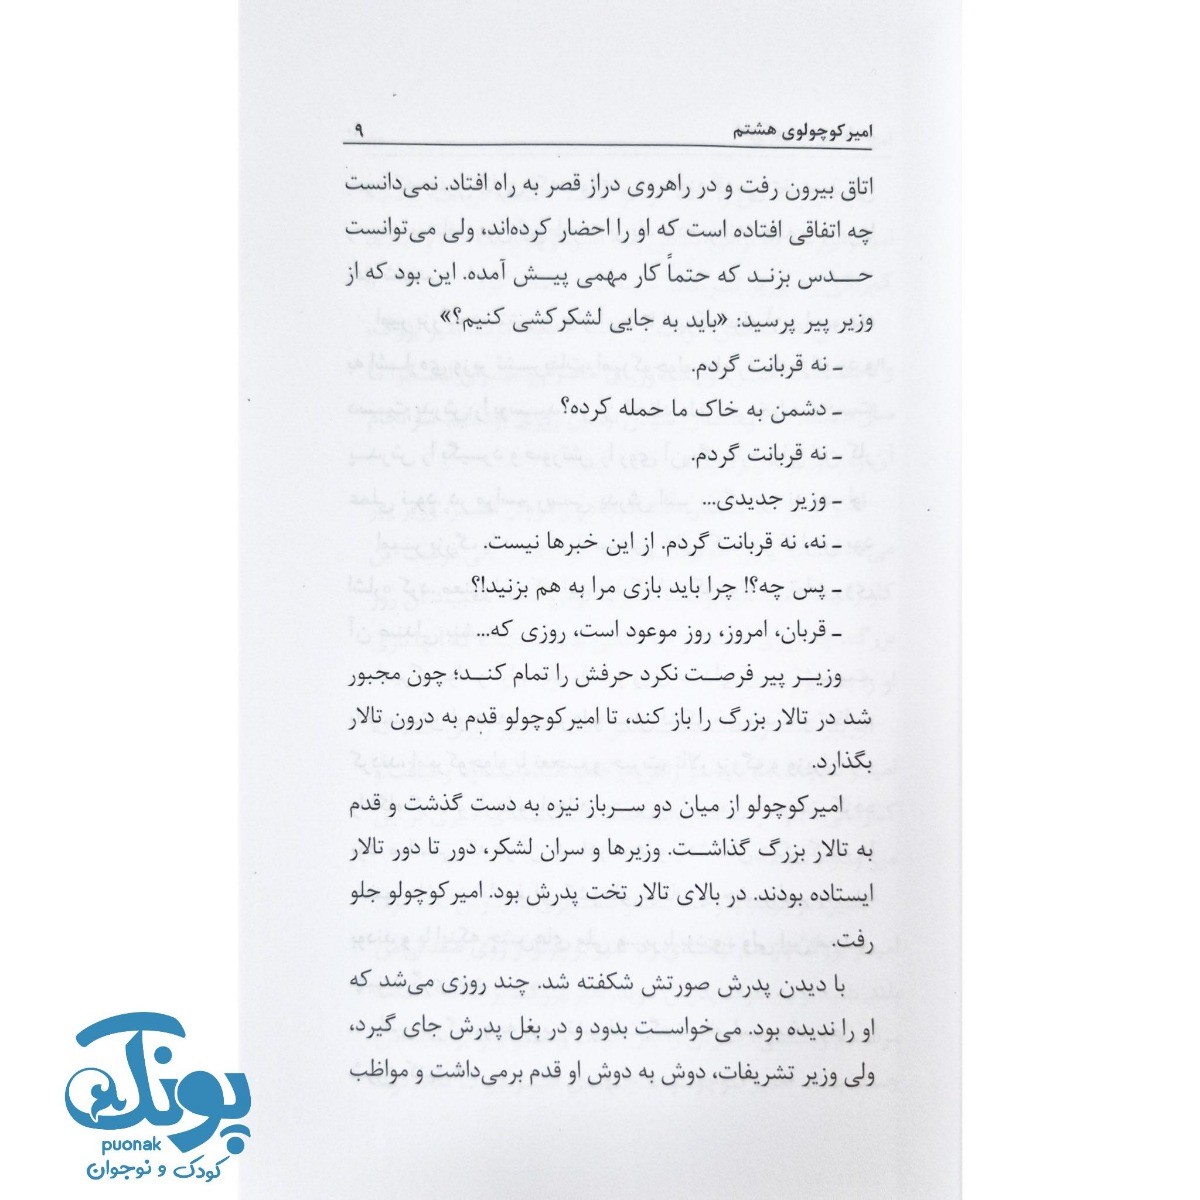 امیرکوچولوی هشتم ۹
اتاق بیرون رفت و در راهروی دراز قصر به راه افتاد. نمی‌دانست
چه اتفاقی افتاده است که او را احضار کرده‌اند، ولی می‌توانست
حدس بزند که حتماً کار مهمی پیش آمده. این بود که از
وزیر پیر پرسید: «باید به جایی لشکرکشی کنیم؟»
ـ نه قربانت گردم.
ـ دشمن به خاک ما حمله کرده؟
ـ نه قربانت گردم.
ـ وزیر جدیدی...
ـ نه، نه قربانت گردم. از این خبرها نیست.
ـ پس چه؟! چرا باید بازی مرا به هم بزنید!؟
ـ قربان، امروز، روز موعود است، روزی که...
وزیر پیر فرصت نکرد حرفش را تمام کند؛ چون مجبور
شد در تالار بزرگ را باز کند، تا امیرکوچولو قدم به درون تالار
بگذارد.
امیرکوچولو از میان دو سرباز نیزه به دست گذشت و قدم
به تالار بزرگ گذاشت. وزیرها و سران لشکر، دور تا دور تالار
ایستاده بودند. در بالای تالار تخت پدرش بود. امیرکوچولو جلو
رفت.
با دیدن پدرش صورتش شکفته شد. چند روزی می‌شد که
او را ندیده بود. می‌خواست بدود و در بغل پدرش جای گیرد،
ولی وزیر تشریفات، دوش به دوش او قدم برمی‌داشت و مواظب
پونک
puonak
کودک و نوجوان